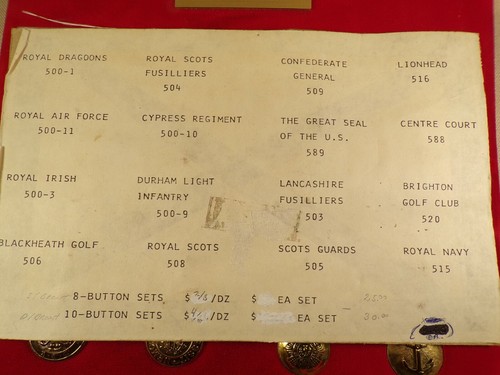 ROYAL DRAGDONS
500-1
ROYAL SCOTS
FUSILLIERS
504
CONFEDERATE
GENERAL
509
LIONHEAD
516
ROYAL AIR FORCE
500-11
CYPRESS REGIMENT
500-10
THE GREAT SEAL
OF THE U.S.
589
CENTRE COURT
588
ROYAL IRISH
500-3
DURHAM LIGHT
INFANTRY
500-9
LANCASHIRE
FUSILLIERS
503
BRIGHTON
GOLF CLUB
520
BLACKHEATH GOLF
506
ROYAL SCOTS
508
SCOTS GUARDS
505
ROYAL NAVY
515
8-BUTTON SETS $ /DZ $ EA SET
10-BUTTON SETS $ /DZ $ EA SET